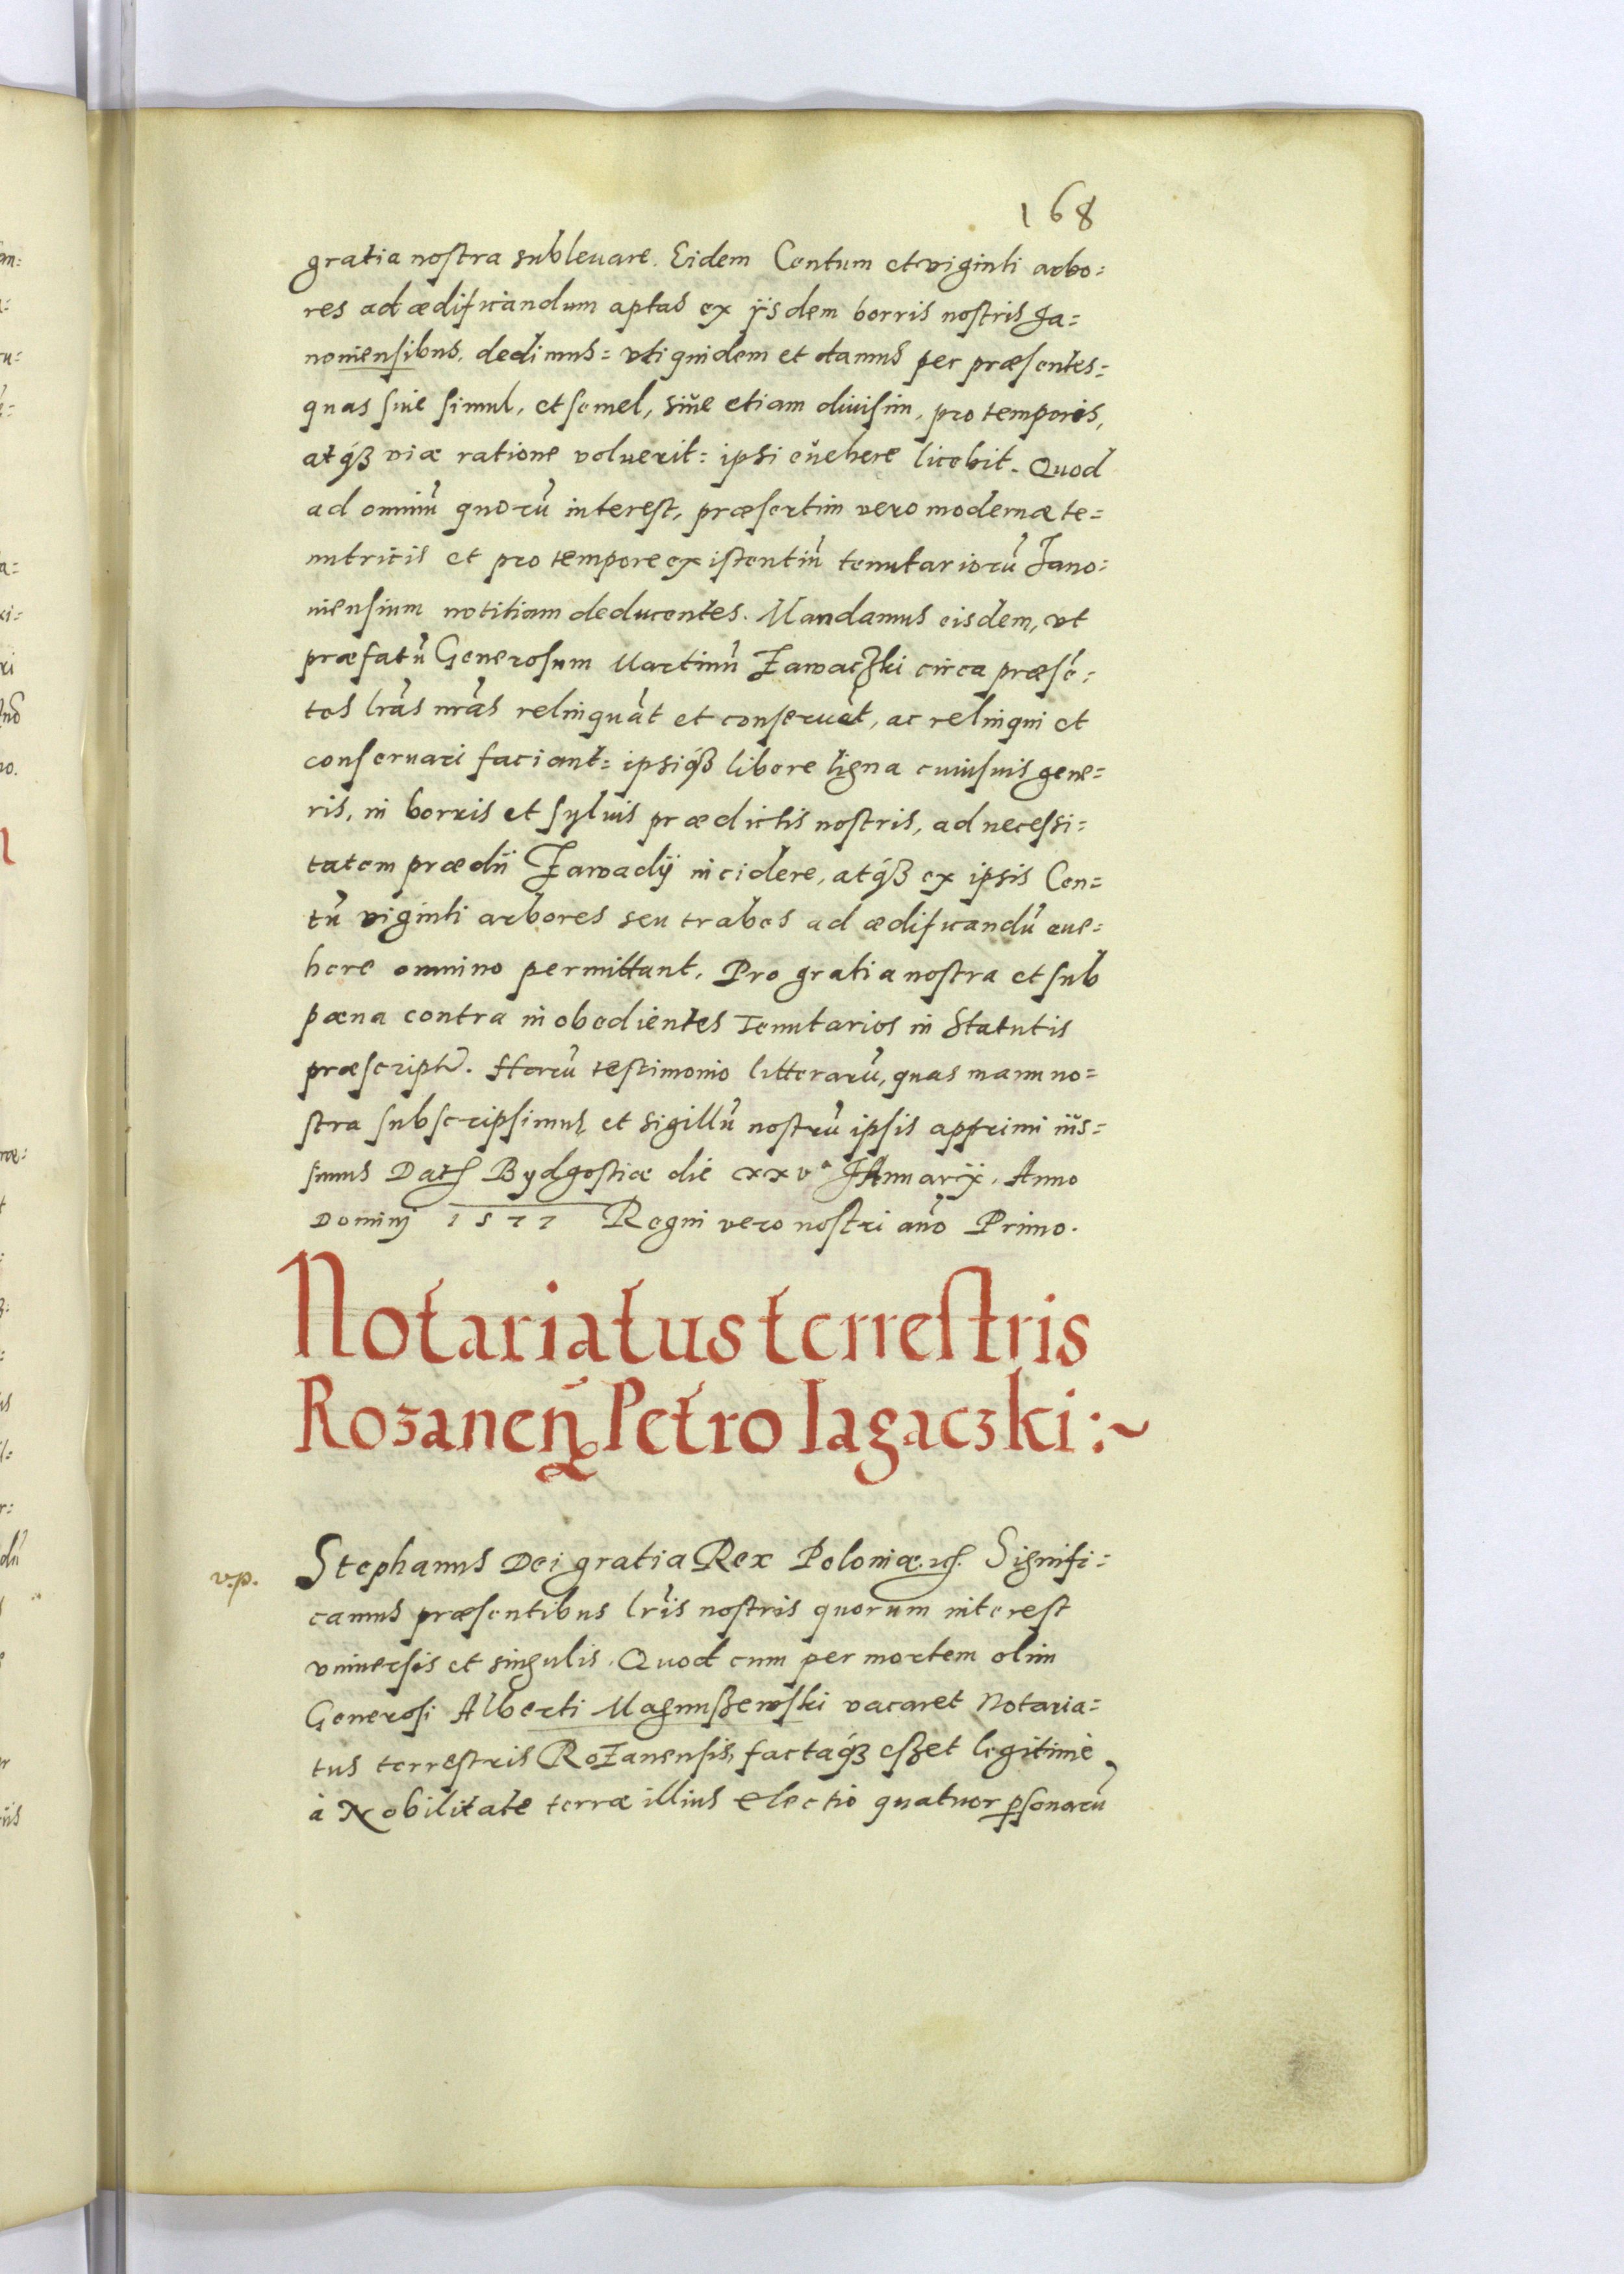 168
gratia nostra subleuare. Eidem Centum et viginti arbo=
res ad ædificandum aptas ex ijsdem borris nostris Ja=
nouiensibus, dedimus= vti quidem et damus per præsentes=
quas siue simul, et semel, siue etiam diuisim, pro temporis,
atq́ꝫ viæ ratione voluerit= ipsi euehere licebit. Quod
ad omniũ quorũ interest, præsertim vero modernæ te=
nutricis et pro tempore existentiũ tenutariorũ Jano=
uiensium notitiam deducentes. Mandamus eisdem, vt
præfatũ Generosum Martinũ Zawaczki circa præsẽ=
tes lr̃as nr̃as relinquãt et conseruẽt, ac relinqui et
conseruari faciant= ipsiq́ꝫ libere ligna cuiusuis gene=
ris, in borris et syluis prædictis nostris, ad necessi=
tatem prædii Zawadÿ incidere, atq́ꝫ ex ipsis Cen=
tũ viginti arbores seu trabes ad ædificandũ eue=
here omnino permittant, Pro gratia nostra et sub
pæna contra inobedientes Tenutarios in Statutis
præscripta. Harũ testimonio litterarũ, quas manu no=
stra subscripsimus et sigillũ nostrũ ipsis apprimi ius=
simus Dat Bydgostiæ die xxvᵃ JAnuarij. Anno
Dominj 1577 Regni vero nostri año Primo.
Notariatus terrestris
Rozanen̄ Petro Jagaczki :~
v.p.
Stephanus Dei gratia Rex Poloniæ. etc. Signifi=
camus præsentibus lr̃is nostris quorum interest
vniuersis et singulis. Quod cum per mortem olim
Generosi Alberti Magnuszewski vacaret Notaria=
tus terrestris Rozanensis, factaq́ꝫ eszet legitimè
à Nobilitate terræ illius electio quatuor ꝑsonarũ